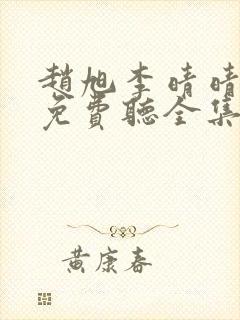 趙旭李晴晴
免費聽全集
黃康春